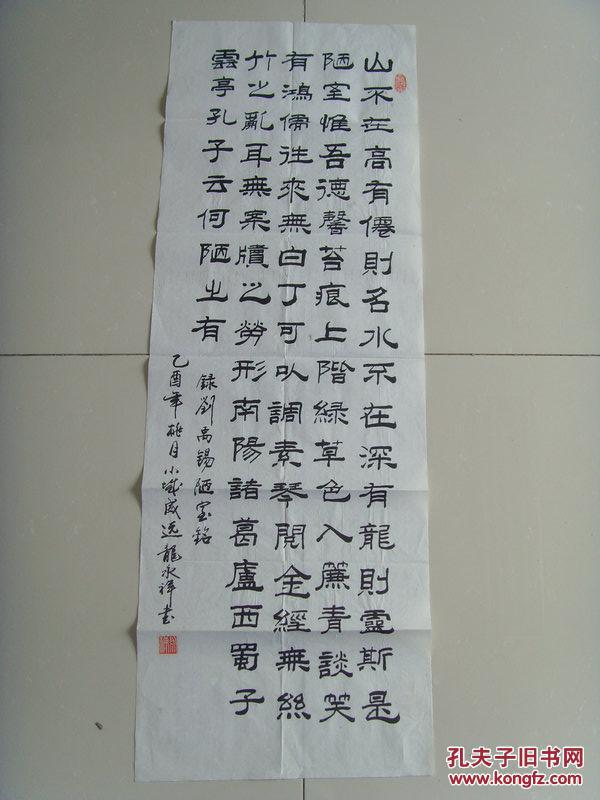 山不在高有僊則名水不在深有龍則靈斯是
陋室惟吾德馨苔痕上階綠草色入簾青談笑
有鴻儒往來無白丁可以調素琴閱金經無絲
竹之亂耳無案牘之勞形南陽諸葛廬西蜀子
雲亭孔子云何陋之有
録劉禹锡陋室銘
乙酉年桃月小城龍永祥書
孔夫子旧书网
www.kongfz.com